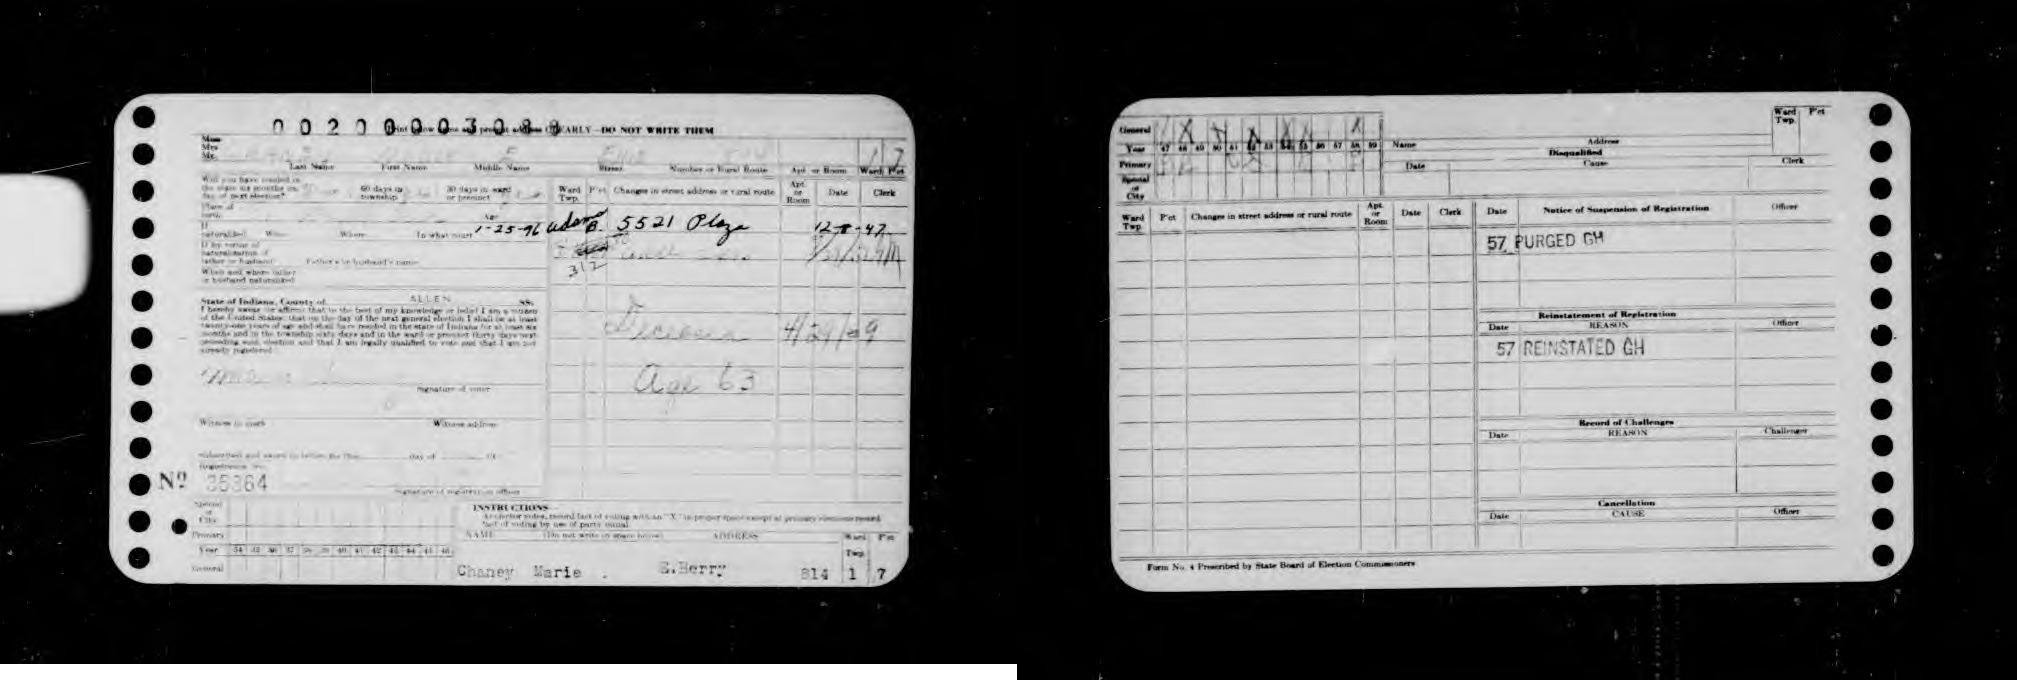 002000003088
Print below name and present address CLEARLY—DO NOT WRITE THEM
Miss
Mrs.
Mr.
Last Name First Name Middle Name Street Number or Rural Route Apt. or Room Ward Pct
1 7
Will you have resided in
the state six months on 60 days in 30 days in ward
day of next election? township or precinct
Ward Twp. P'ct Changes in street address or rural route Apt. or Room Date Clerk
Place of
birth Age 1-25-96
Adams B. 5521 Plaza 12-8-47
If
naturalized When Where In what court
312
If by virtue of
naturalization of
father or husband Father's or husband's name
When and where father
or husband naturalized
State of Indiana, County of ALLEN SS:
I hereby swear (or affirm) that to the best of my knowledge or belief I am a citizen
of the United States; that on the day of the next general election I shall be at least
twenty-one years of age and shall have resided in the state of Indiana for at least six
months and in the township sixty days and in the ward or precinct thirty days next
preceding said election and that I am legally qualified to vote and that I am not
already registered
Age 63
Signature of voter
Witness to mark Witness address
Subscribed and sworn to before me this day of 19
Registration No.
Nº 35364
Signature of registration officer
Special
or
City
Primary
Year 34 35 36 37 38 39 40 41 42 43 44 45 46
General
INSTRUCTIONS—
At elector votes, record fact of voting with an "X" in proper space except at primary elections record
fact of voting by use of party initial.
NAME (Do not write in space below) ADDRESS Ward Twp. P'ct
Chaney Marie . E.Berry 814 1 7
General X X X X X X X
Year 47 48 49 50 51 52 53 54 55 56 57 58 59
Primary
Special
or
City
Name Address
Disqualified
Date Cause Clerk
Ward Twp. P'ct
Ward Twp. P'ct Changes in street address or rural route Apt. or Room Date Clerk
Date Notice of Suspension of Registration Officer
57 PURGED GH
Reinstatement of Registration
Date REASON Officer
57 REINSTATED GH
Record of Challenges
Date REASON Challenger
Cancellation
Date CAUSE Officer
Form No. 4 Prescribed by State Board of Election Commissioners